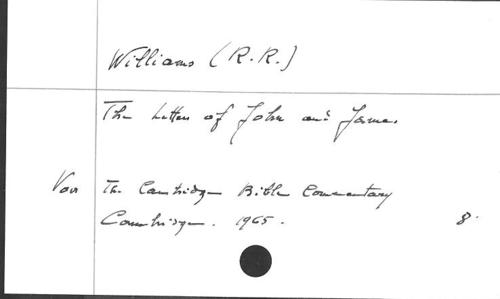 Williams (R.R.)
The Letters of John and James.
Var The Cambridge Bible Commentary
Cambridge. 1965. 8.